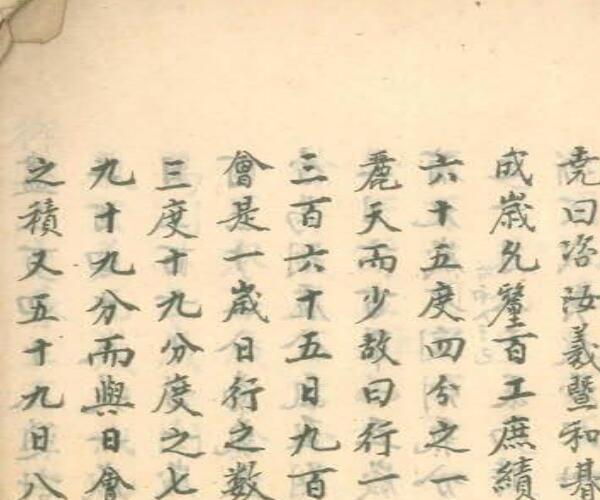 堯曰咨汝羲暨和朞
成歳允釐百工庶績
六十五度四分之一
麗天而少故曰行一
三百六十五日九百
會是一歳日行之数
三度十九分度之七
九十九分而與日會
之積又五千九日八